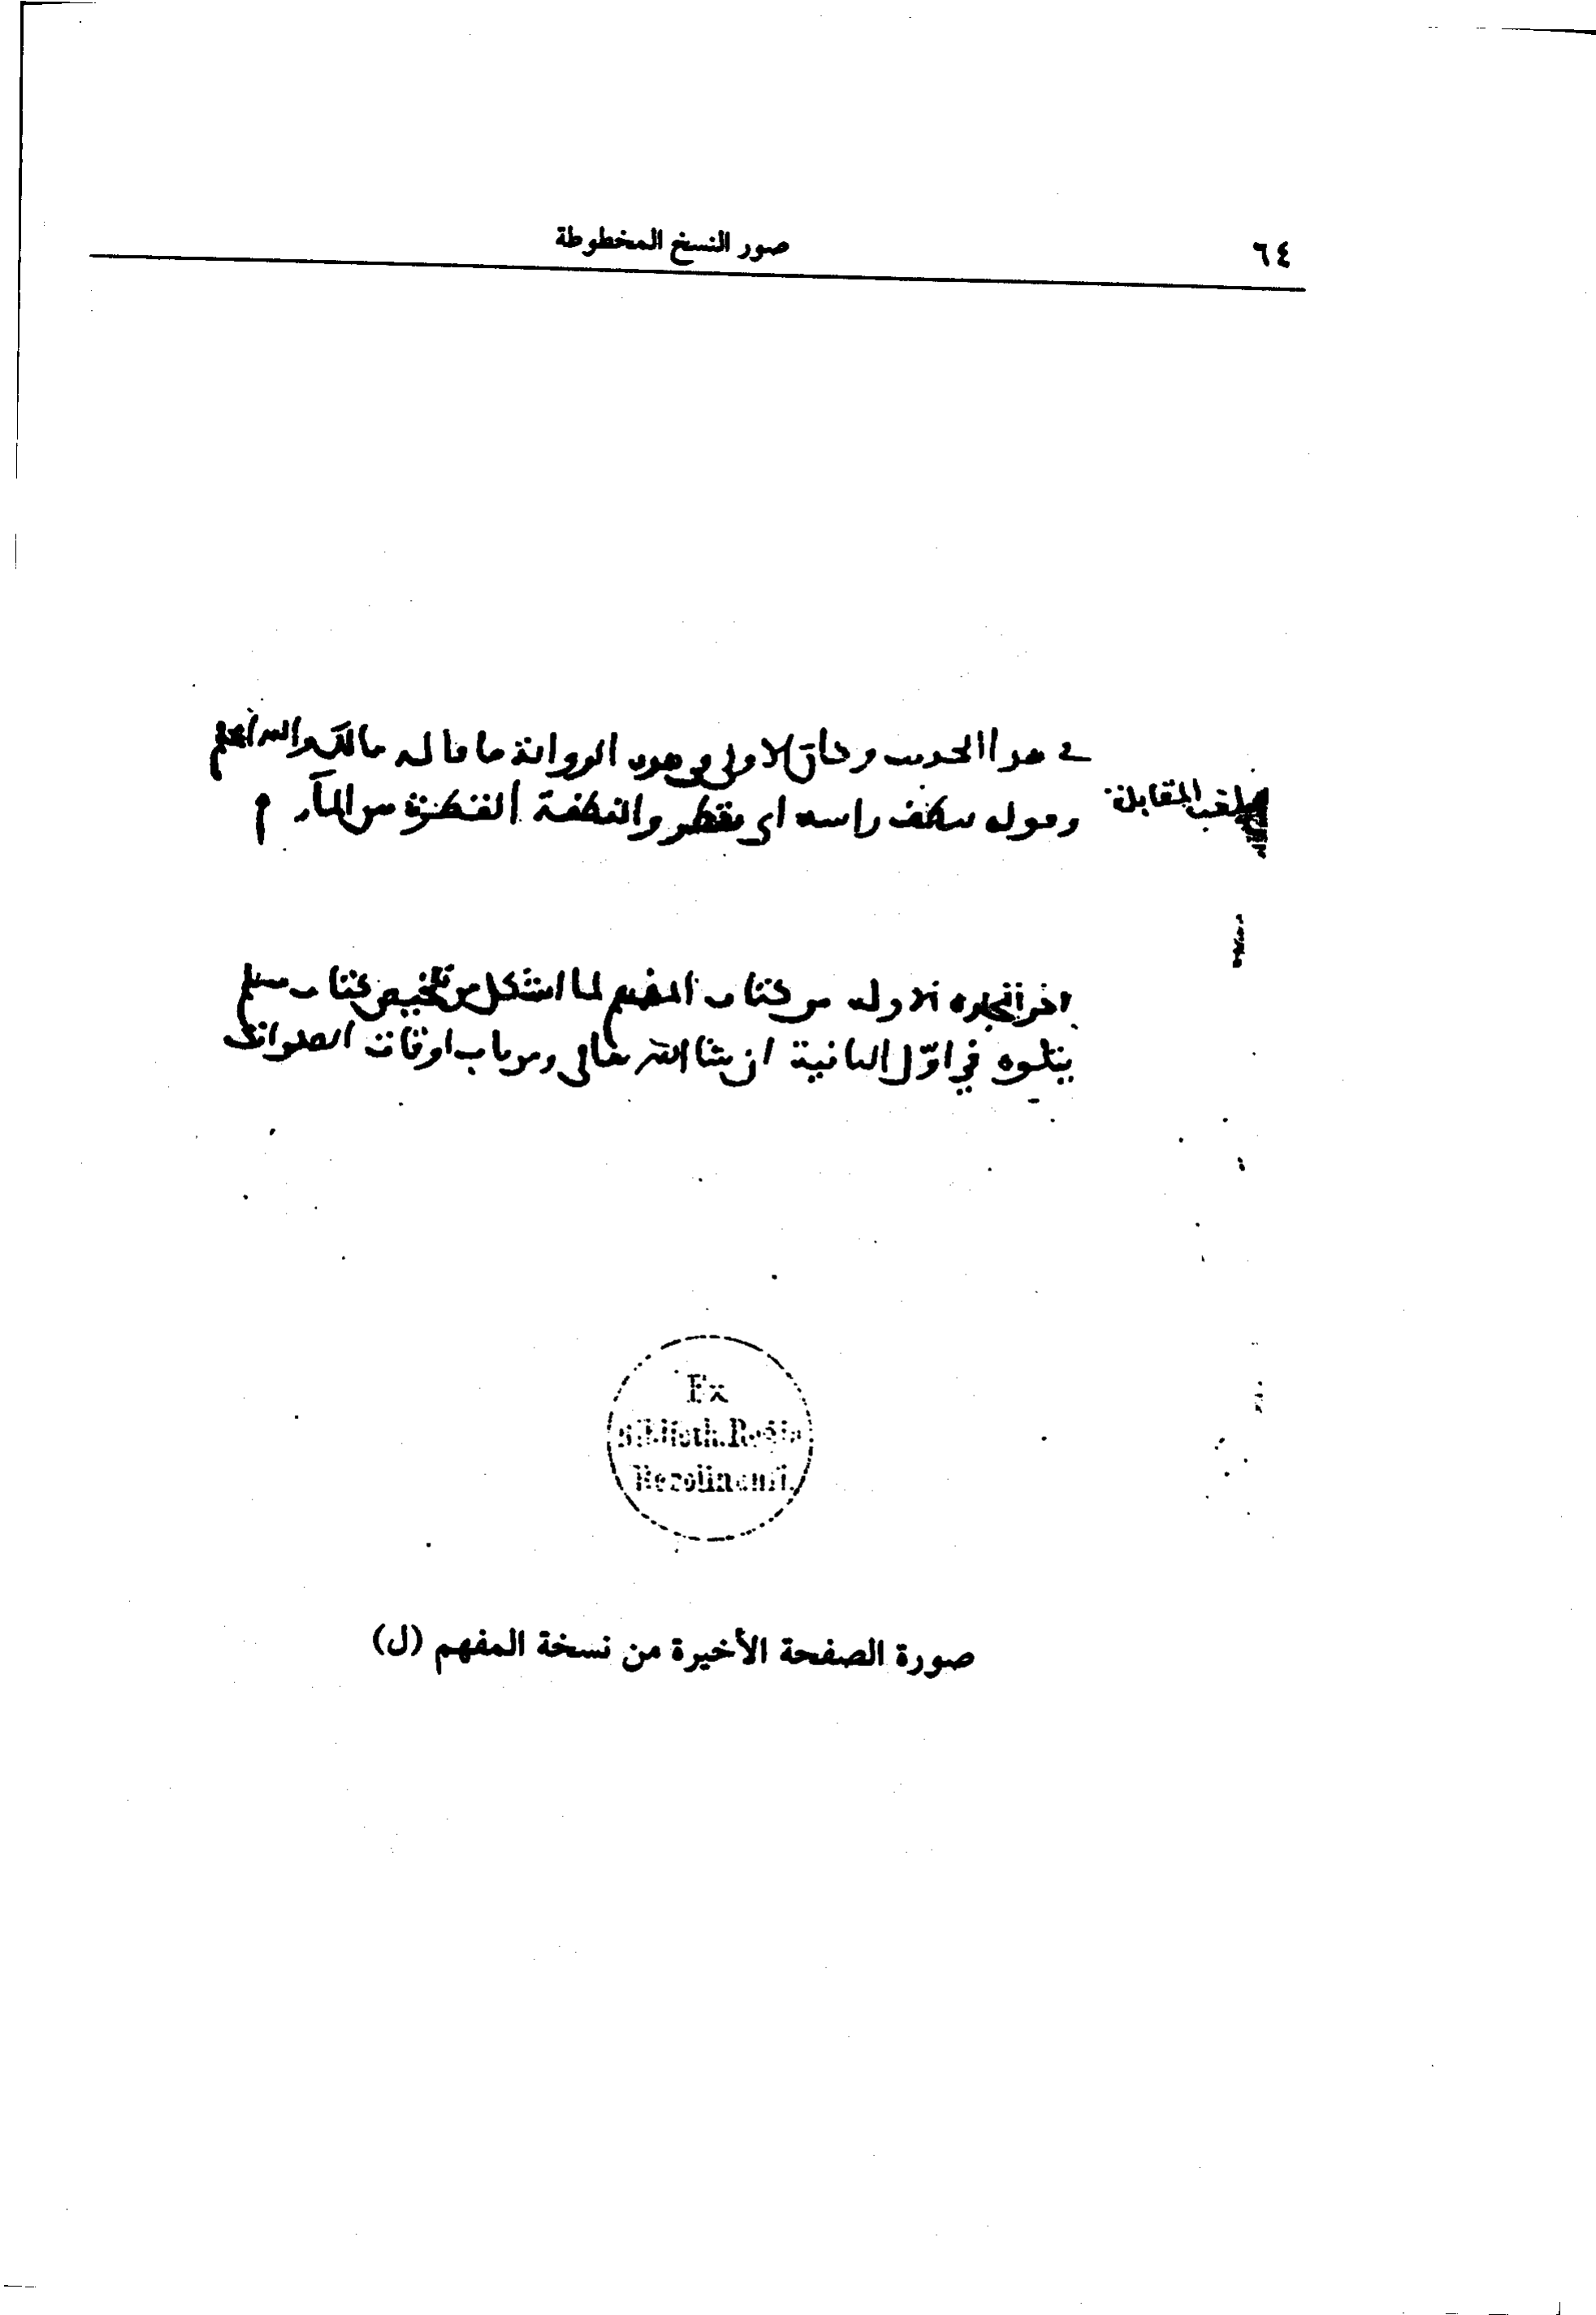 ٦٤ صور النسخ المخطوطة
في هذا الحديث وكان الاولى في هذه الرواية ما قاله مالك والله اعلم
بلغت المقابلة
وقوله ينطف راسه اي يقطر والنطفة القطرة من الماء
اخر المجلدة الاولى من كتاب المفهم لما اشكل من تلخيص كتاب مسلم
يتلوه في اوّل الثانية ان شا الله تعالى ومن باب اوقات الصلوات
Ex
Biblioth. Regia
Berolinensi.
صورة الصفحة الأخيرة من نسخة المفهم (ل)